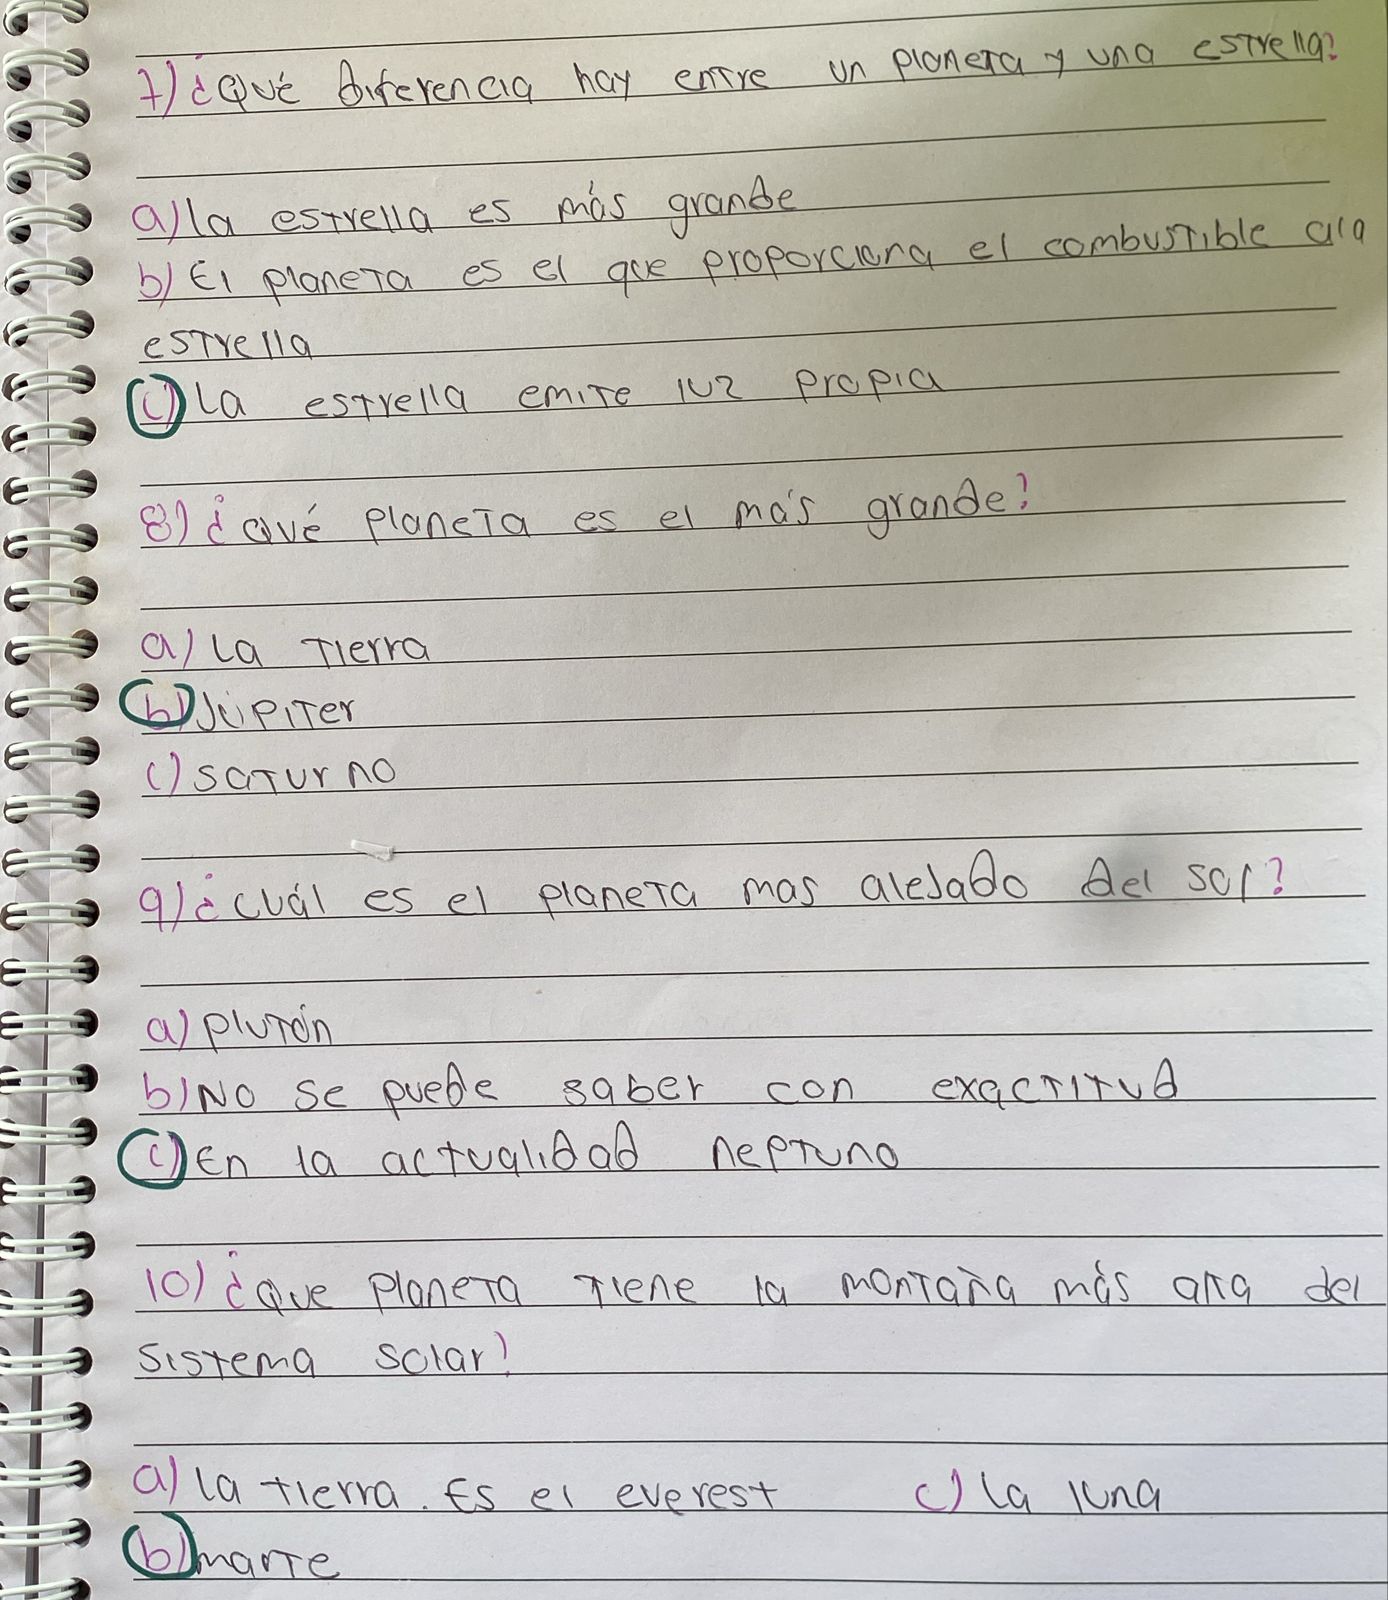 7) ¿Qué diferencia hay entre un planeta y una estrella?
a) la estrella es más grande
b) El planeta es el que proporciona el combustible ala
estrella
c) La estrella emite luz propia
8) ¿Qué planeta es el más grande?
a) La Tierra
b) Júpiter
c) saturno
9) ¿cuál es el planeta mas alejado del sol?
a) plutón
b) No se puede saber con exactitud
c) En la actualidad neptuno
10) ¿Que planeta tiene la montaña más alta del
sistema solar?
a) la tierra. Es el everest c) La luna
b) marte